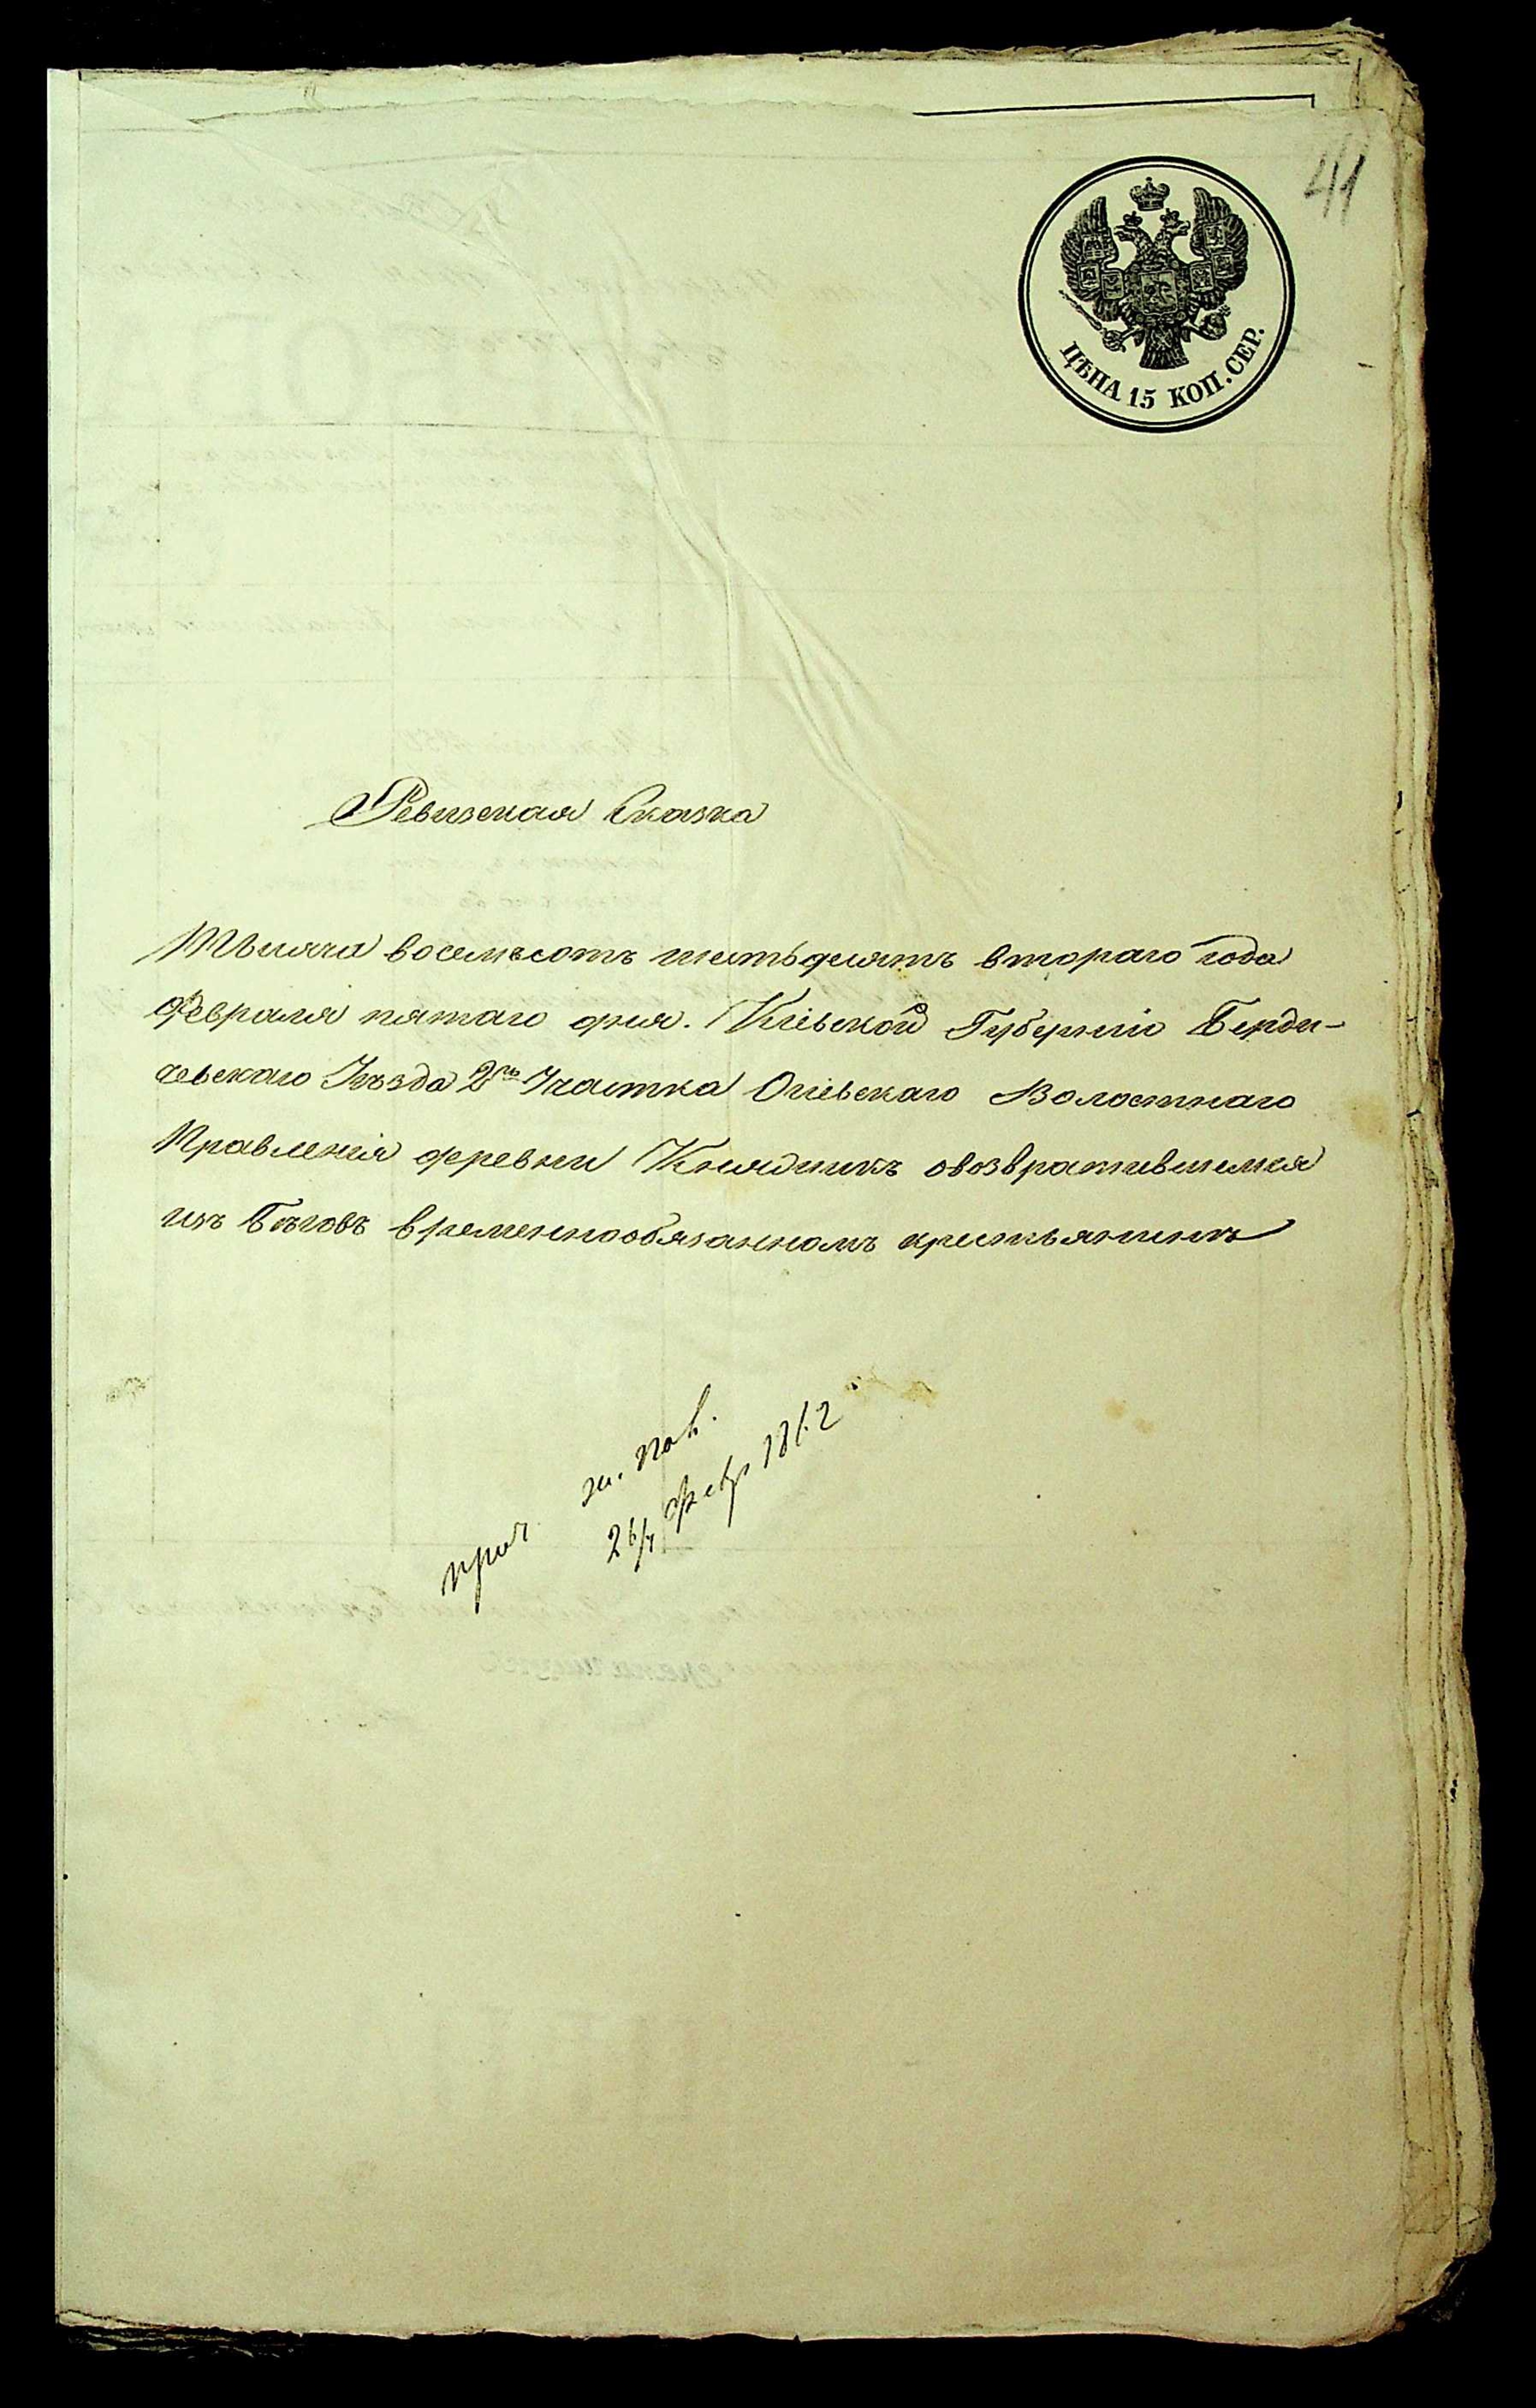 41
ЦѢНА 15 КОП. СЕР.
Ревизская Сказка
Тысяча восемьсотъ шестьдесятъ втораго года
Февраля пятаго дня. Кіевской Губерніи Берди-
чевскаго Уѣзда 2го Участка Очіевскаго Волостнаго
Правленія деревни Княдчикъ овозвратившемся
изъ Бѣговъ временнообязанномъ крестьянинѣ
2 Февр 1862